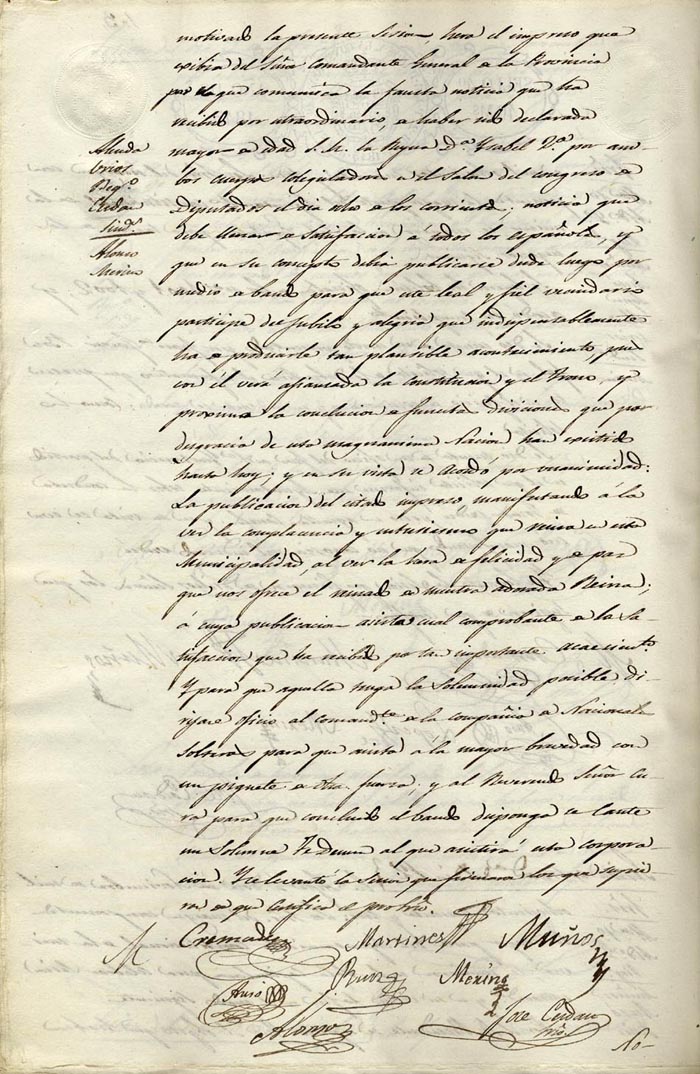 motivado la presente sesion hera el impreso que
exibia del Señor Comandante General de la Provincia
por el que comunica la fausta noticia que ha
recibido por extraordinario, de haber sido declarada
mayor de edad S. M. la Reyna D.ª Ysabel 2.ª por am-
bos cuerpos colegisladores en el Salon del congreso de
Diputados el dia ocho de los corrientes; noticia que
debe llenar de satisfaccion á todos los españoles, y
que en su concepto debia publicarse desde luego por
medio de bando para que este leal y fiel vecindario
participe del jubilo y alegria que indispensablemente
ha de producirle tan plausible acontecimiento, pues
con él vera afianzada la constitucion y el Trono, y
proxima la conclucion de funestas diviciones que por
desgracia de esta magnanima Nacion han existido
hasta hoy; y en su vista se acordó por unanimidad:
La publicacion del citado impreso, manifestando á la
vez la complacencia y entusiasmo que reina en esta
Municipalidad, al ver la hera de felicidad y de paz
que nos ofrece el reinado de nuestra adorada Reina;
á cuya publicacion asista cual comprobante de la Sa-
tisfaccion que ha recibido por tan importante acaecim.to
Y para que aquella tenga la Solemnidad posible di-
rijase oficio al comand.te de la compañia de Nacionales
para que asista a la mayor brevedad con
un piquete de dha. fuerza; y al Reverendo Señor Cu-
ra para que concluido el bando disponga se cante
un Solemne Te Deum al que asistirá esta corpora-
cion. Y se levantó la Sesion que firmaron los que supie-
ron de que certifico
Alonso
Merino
Cremades Martines Muños
Ruiz Merino
Alonso Jose Cerdan
No-